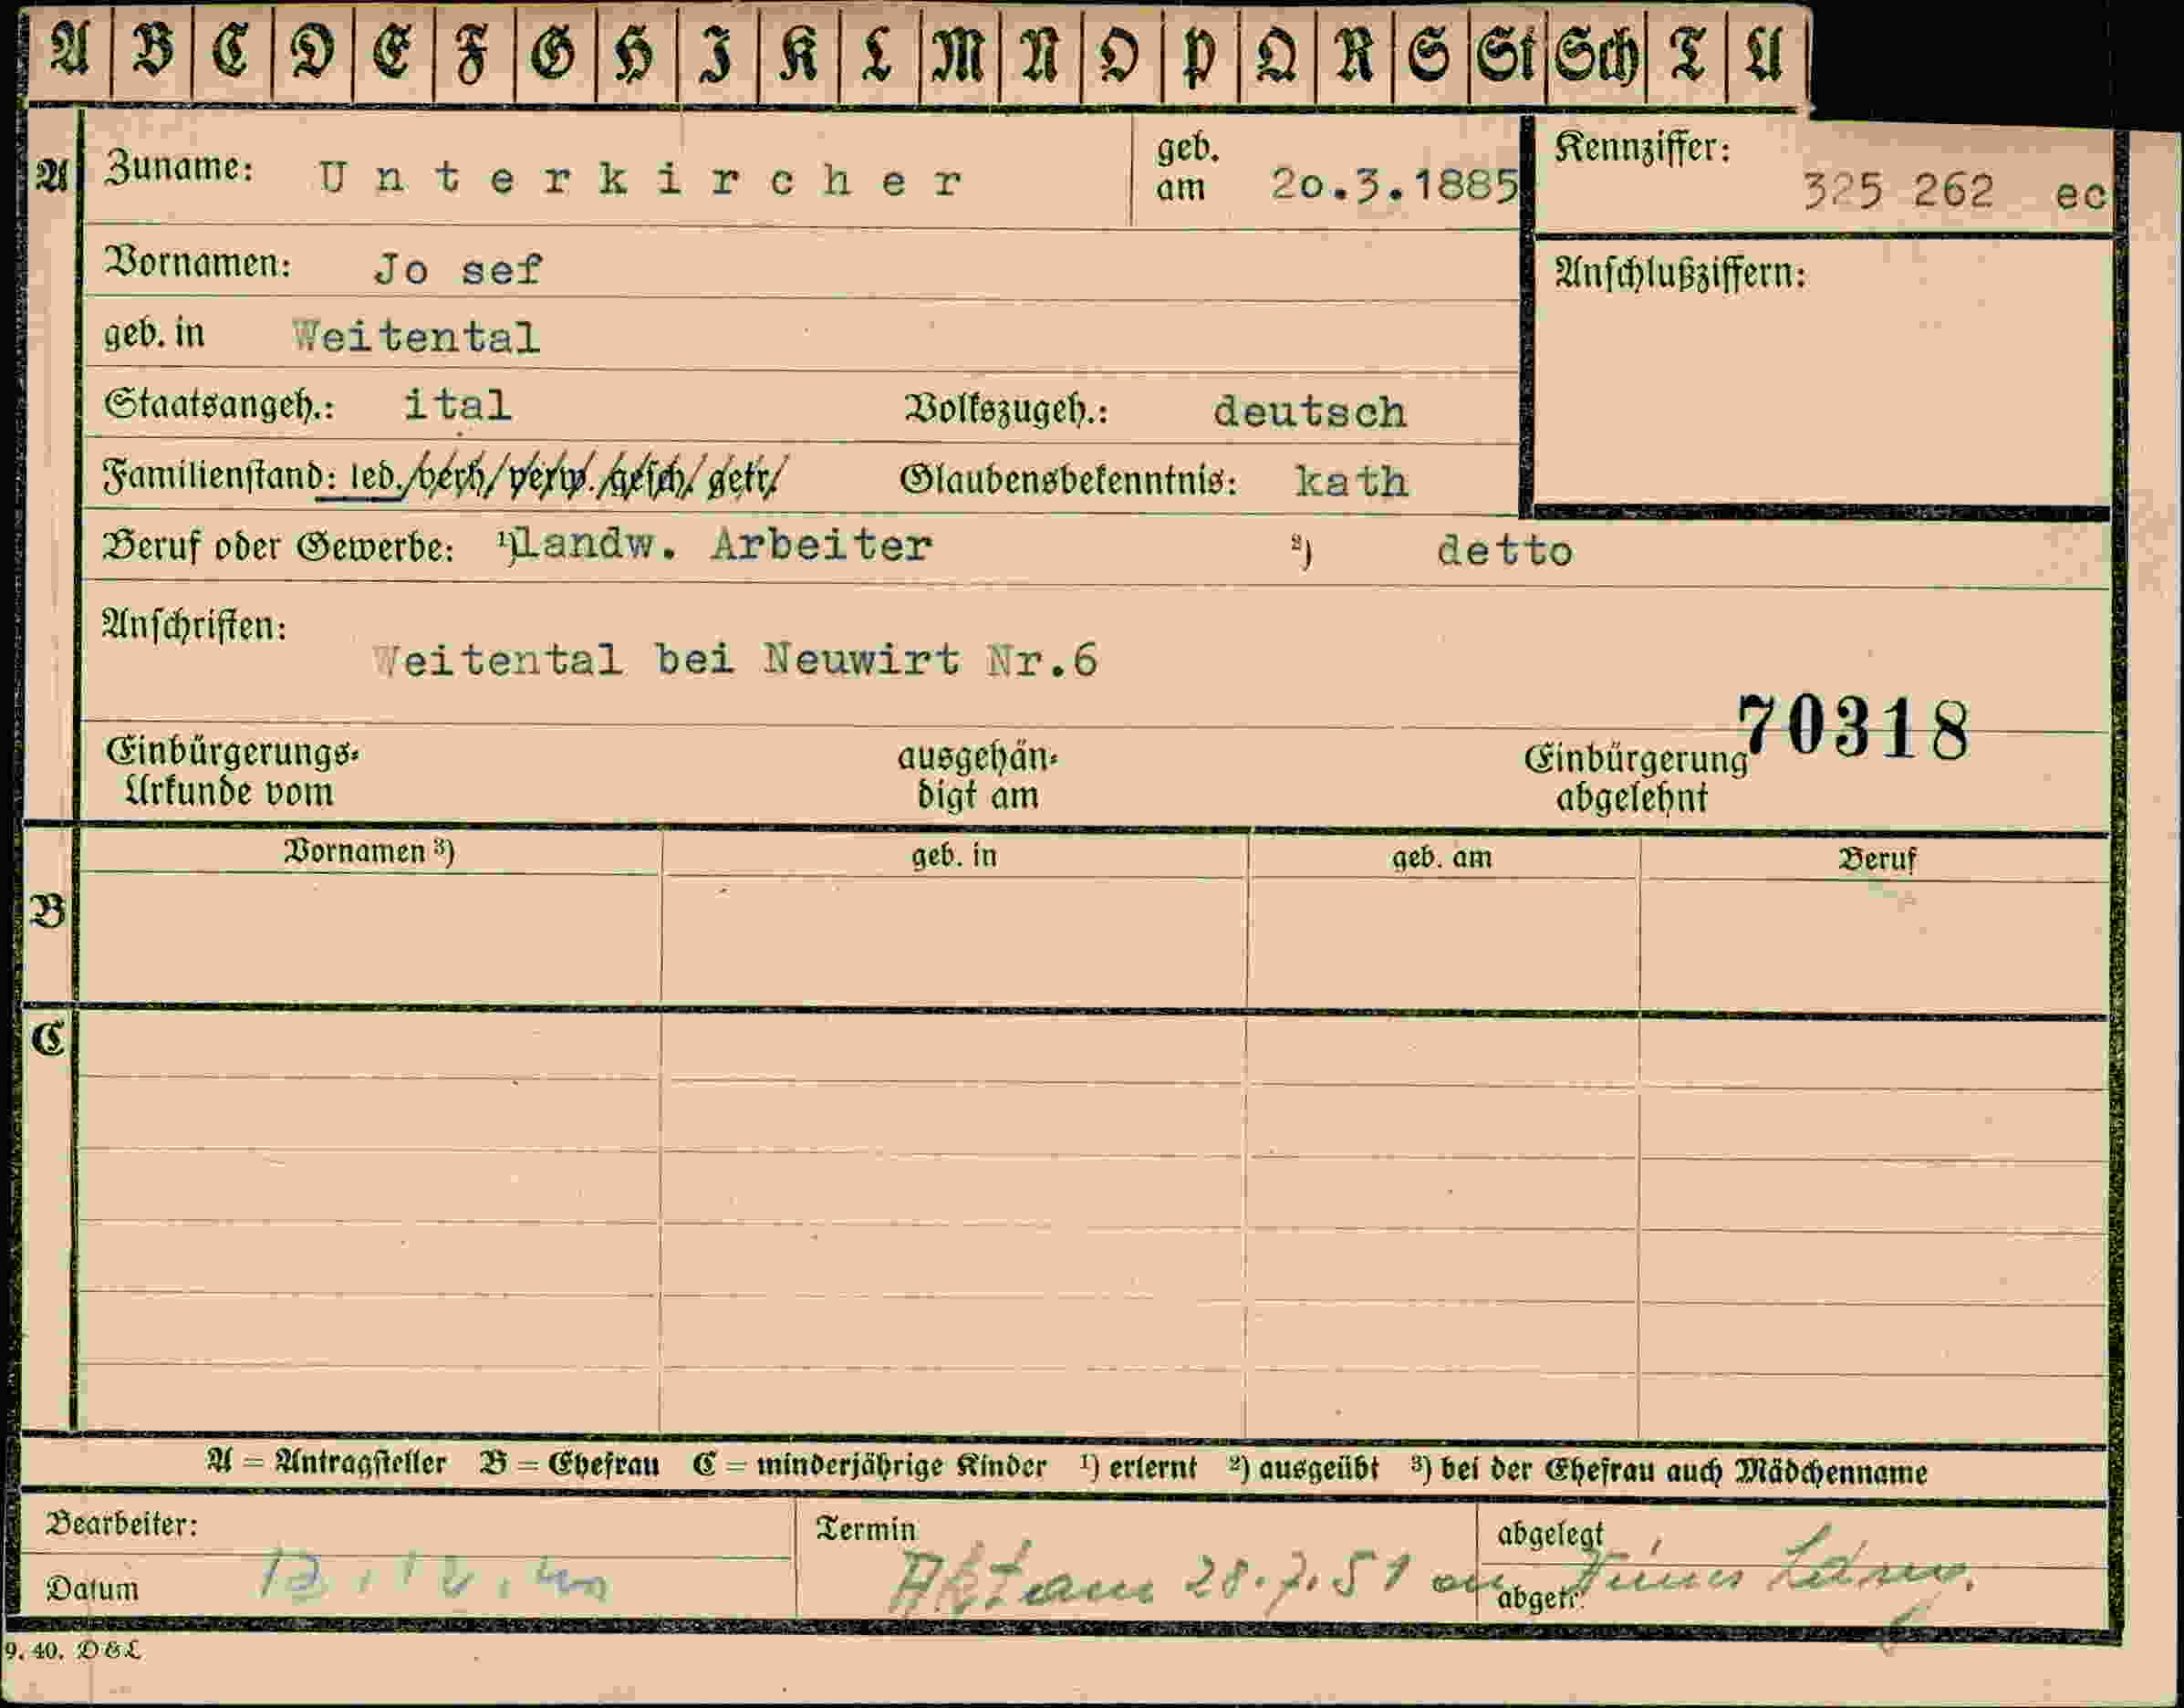 A B C D E F G H I K L M N O P Q R S St Sch T U
A Zuname: Unterkircher geb. am 20.3.1885 Kennziffer: 325 262 ec
Vornamen: Jo sef Anschlußziffern:
geb. in Weitental
Staatsangeh.: ital Volkszugeh.: deutsch
Familienstand: led./verh/verw./gesch/getr/ Glaubensbekenntnis: kath
Beruf oder Gewerbe: ¹)landw. Arbeiter ²) detto
Anschriften:
Weitental bei Neuwirt Nr.6
70318
Einbürgerungs- ausgehän- Einbürgerung
Urkunde vom digt am abgelehnt
Vornamen ³) geb. in geb. am Beruf
B
C
A = Antragsteller B = Ehefrau C = minderjährige Kinder ¹) erlernt ²) ausgeübt ³) bei der Ehefrau auch Mädchenname
Bearbeiter: Termin abgelegt
Datum 12.12.40 Akt am 28.7.51 an abgetr.
9. 40. D & L